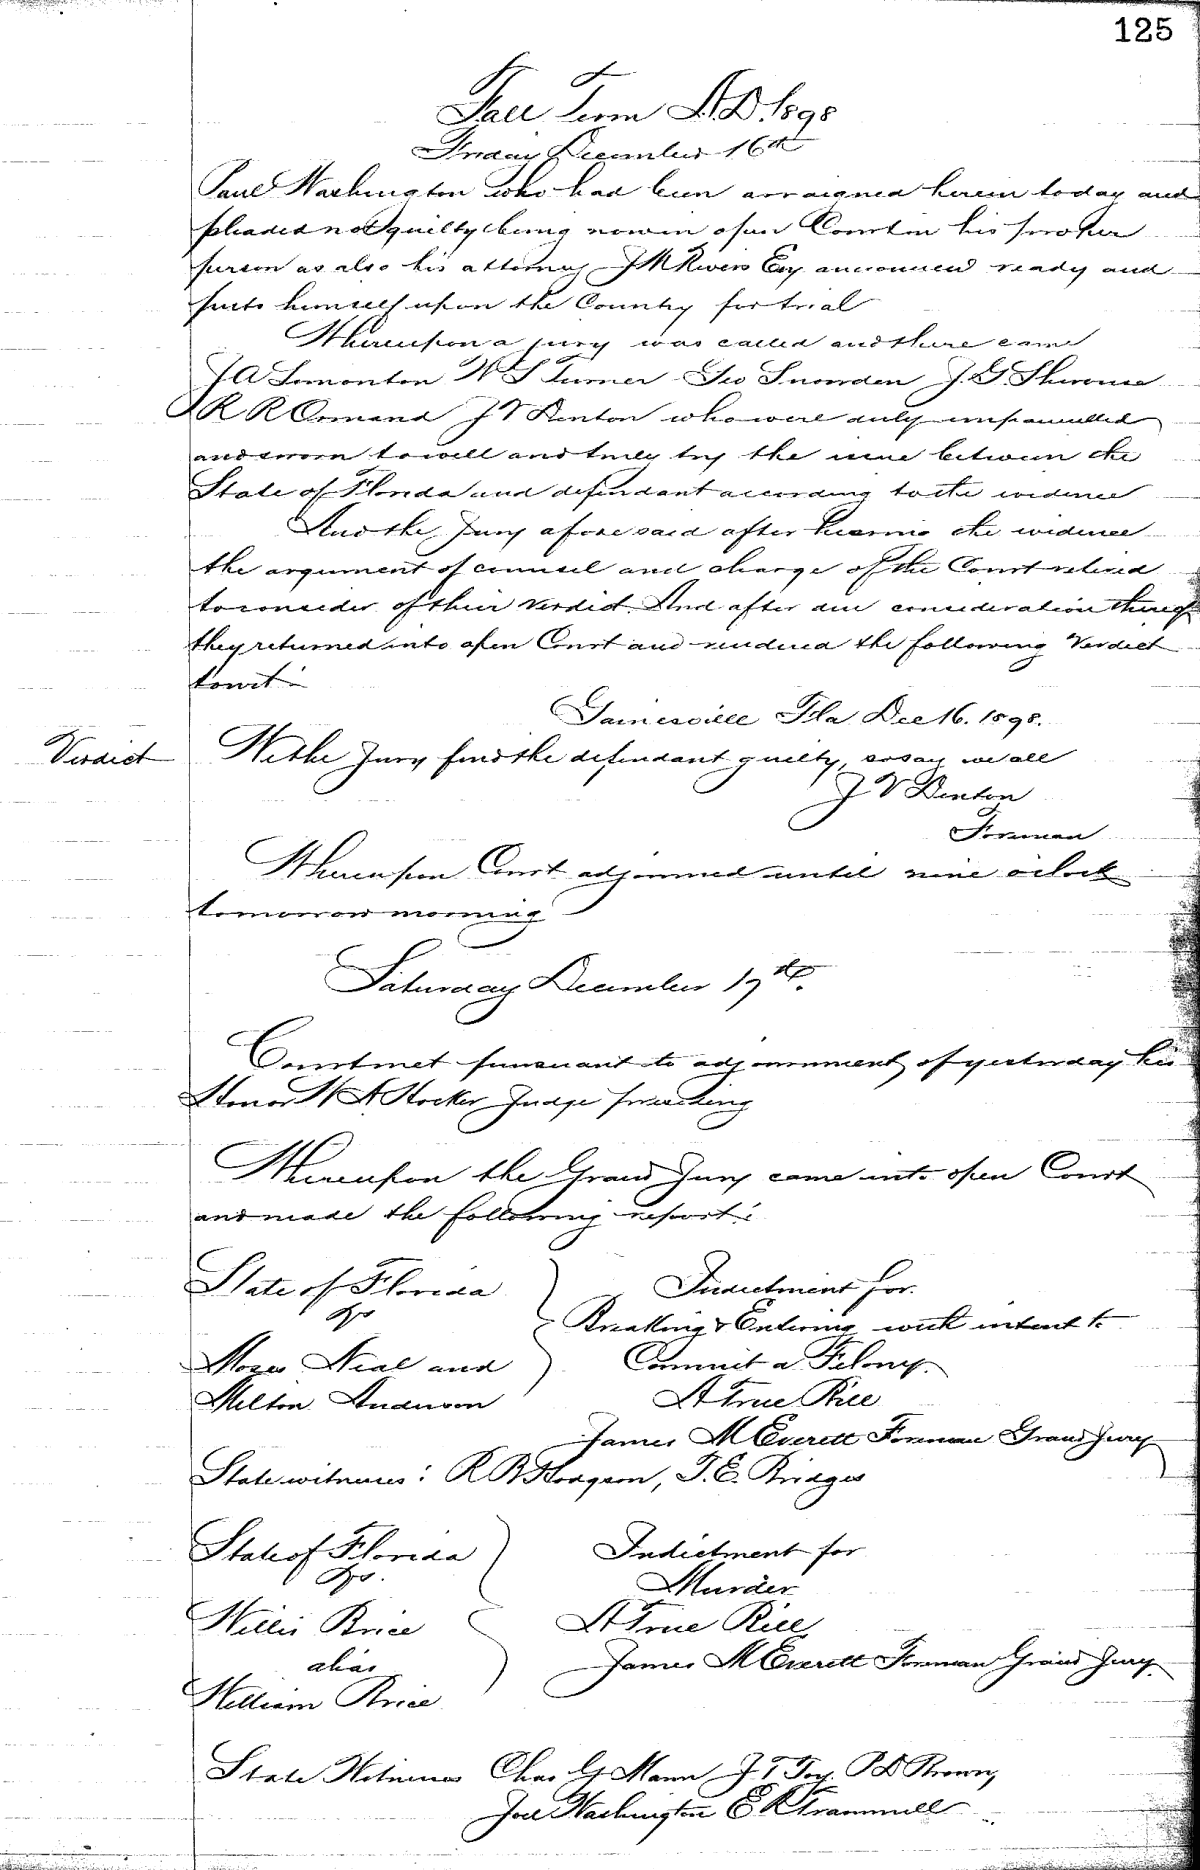 125
Fall Term A.D. 1898
Friday December 16th
Paul Washington who had been arraigned herein today and
pleaded not guilty being now in open Court in his proper
person as also his attorney Esq announced ready and
puts himself upon the Country for trial
Whereupon a jury was called and there came
J A Simonton W S Turner Geo Snowden J. G.
R R Ormand J V Denton who were duly empannelled
and sworn to well and truly try the issue between the
State of Florida and defendant according to the evidence
And the Jury afore said after hearing the evidence
the argument of counsel and charge of the Court retired
to consider of their verdict. And after due consideration thereof
they returned into open Court and rendered the following Verdict
towit:
Gainesville Fla Dec 16. 1898.
Verdict We the Jury find the defendant guilty, so say we all
J V Denton
Forman
Whereupon Court adjourned until nine o'clock
tomorrow morning
Saturday December 17th.
Court met pursuant to adjournment of yesterday his
Honor W A Hocker Judge presiding
Whereupon the Grand Jury came into open Court
and made the following report:
State of Florida Indictment for
vs Breaking & Entering with intent to
Moses Neal and Commit a Felony.
Melton Anderson A True Bill
James M Everett Forman Grand Jury
State witnesses: R B Hodgson, T. E. Bridges
State of Florida Indictment for
vs. Murder
Willis Brice A True Bill
alias James M Everett Forman Grand Jury
William Brice
State Witnesses Chas G Mann J T Brown,
Joe Washington E R Trammell